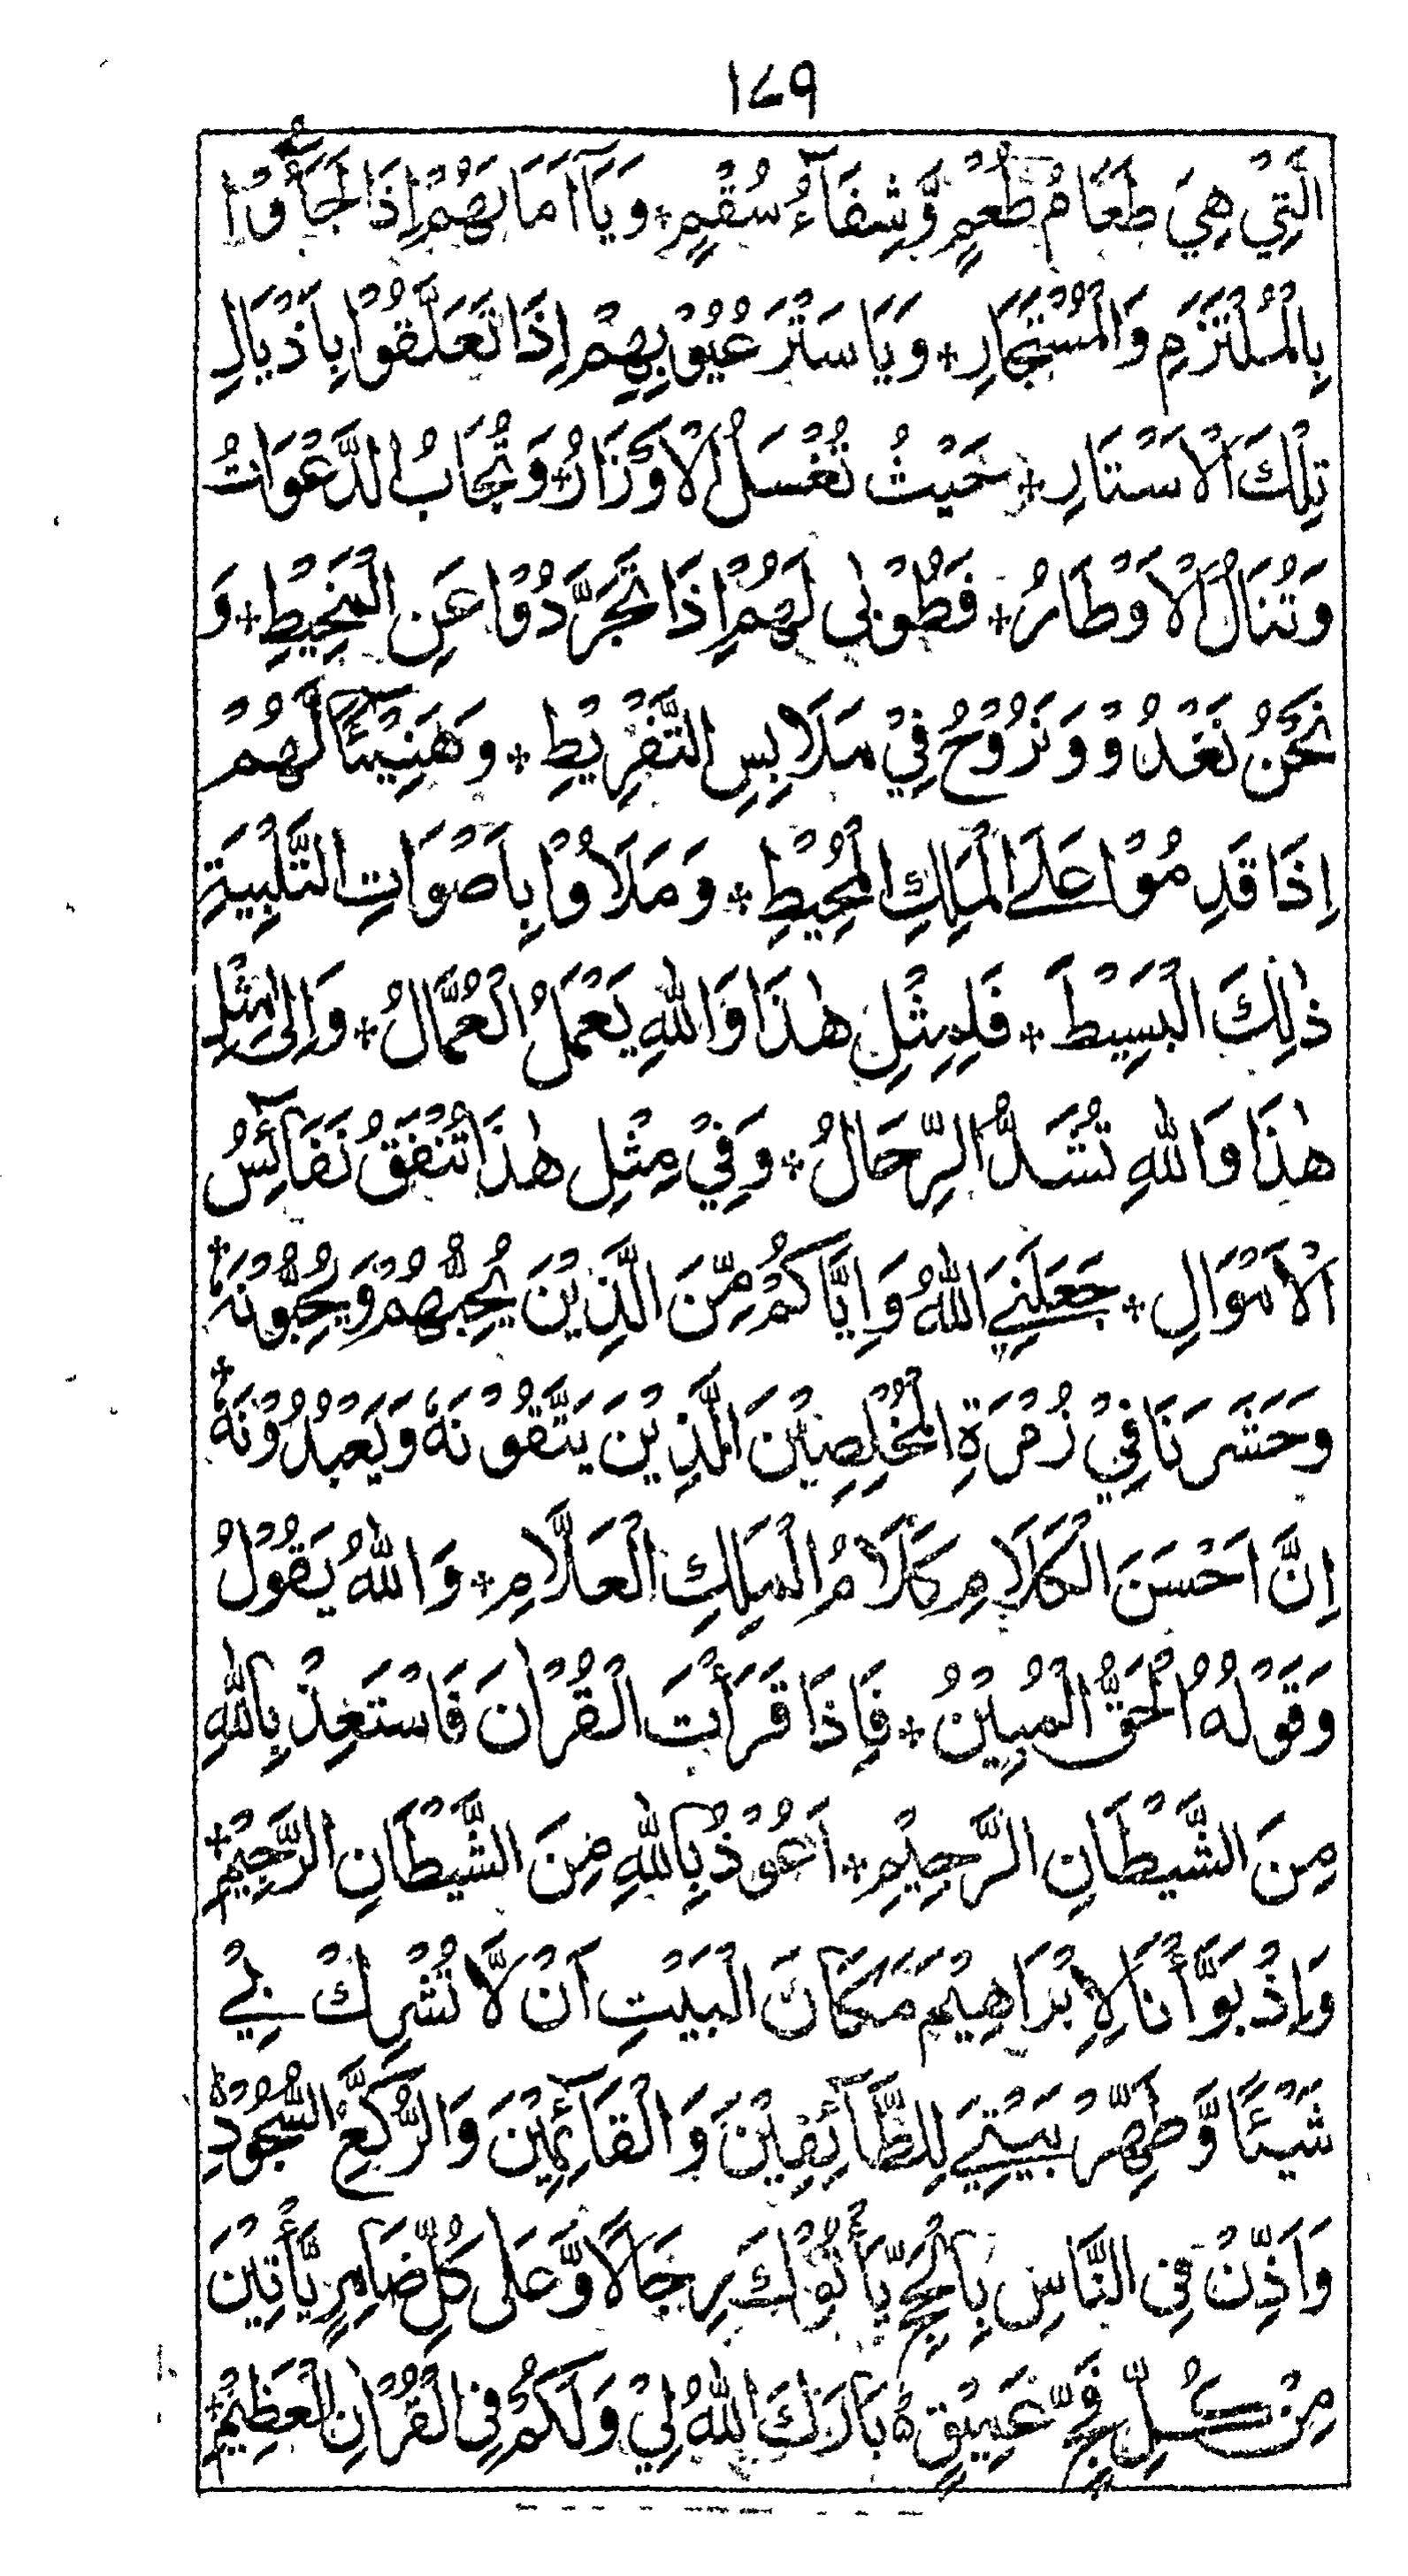 ۱۷۹
الَّتِيْ هِيَ طَعَامُ طُعْمٍ وَّشِفَآءُ سُقْمٍ + وَيَآ اَمَانَهُمْ اِذَا لَجَأُوْا
بِالْمُلْتَزَمِ وَالْمُسْتَجَارِ + وَيَا سَتْرَ عُيُوْبِهِمْ اِذَا تَعَلَّقُوْا بِاَذْيَالِ
تِلْكَ الْاَسْتَارِ + حَيْثُ تُغْسَلُ الْاَوْزَارُ + وَتُجَابُ الدَّعْوَاتُ
وَتُنَالُ الْاَوْطَارُ + فَطُوْبٰى لَهُمْ اِذَا تَجَرَّدُوْا عَنِ الْمَخِيْطِ + وَ
نَحْنُ نَغْدُوْ وَنَرُوْحُ فِيْ مَلَابِسِ التَّفْرِيْطِ + وَهَنِيْئًا لَهُمْ
اِذَا قَدِمُوْا عَلَى الْمَلِكِ الْمُحِيْطِ + وَمَلَاُوْا بِاَصْوَاتِ التَّلْبِيَةِ
ذٰلِكَ الْبَسِيْطَ + فَلِمِثْلِ هٰذَا وَاللهِ يَعْمَلُ الْعُمَّالُ + وَاِلٰى مِثْلِ
هٰذَا وَاللهِ تُشَدُّ الرِّحَالُ + وَفِيْ مِثْلِ هٰذَا تُنْفَقُ نَفَآئِسُ
الْاَمْوَالِ + جَعَلَنِيَ اللهُ وَاِيَّاكُمْ مِّنَ الَّذِيْنَ يُحِبُّهُمْ وَيُحِبُّوْنَهٗ +
وَحَشَرَنَا فِيْ زُمْرَةِ الْمُخْلِصِيْنَ الَّذِيْنَ يَتَّقُوْنَهٗ وَيَعْبُدُوْنَهٗ +
اِنَّ اَحْسَنَ الْكَلَامِ كَلَامُ الْمَلِكِ الْعَلَّامِ + وَاللهُ يَقُوْلُ
وَقَوْلُهُ الْحَقُّ الْمُبِيْنُ + فَاِذَا قَرَأْتَ الْقُرْاٰنَ فَاسْتَعِذْ بِاللهِ
مِنَ الشَّيْطَانِ الرَّجِيْمِ + اَعُوْذُ بِاللهِ مِنَ الشَّيْطَانِ الرَّجِيْمِ +
وَاِذْ بَوَّأْنَا لِاِبْرَاهِيْمَ مَكَانَ الْبَيْتِ اَنْ لَّا تُشْرِكْ بِيْ
شَيْئًا وَّطَهِّرْ بَيْتِيَ لِلطَّآئِفِيْنَ وَالْقَآئِمِيْنَ وَالرُّكَّعِ السُّجُوْدِ
وَاَذِّنْ فِى النَّاسِ بِالْحَجِّ يَأْتُوْكَ رِجَالًا وَّعَلٰى كُلِّ ضَامِرٍ يَّأْتِيْنَ
مِنْ كُلِّ فَجٍّ عَمِيْقٍ ۵ بَارَكَ اللهُ لِيْ وَلَكُمْ فِى الْقُرْاٰنِ الْعَظِيْمِ +